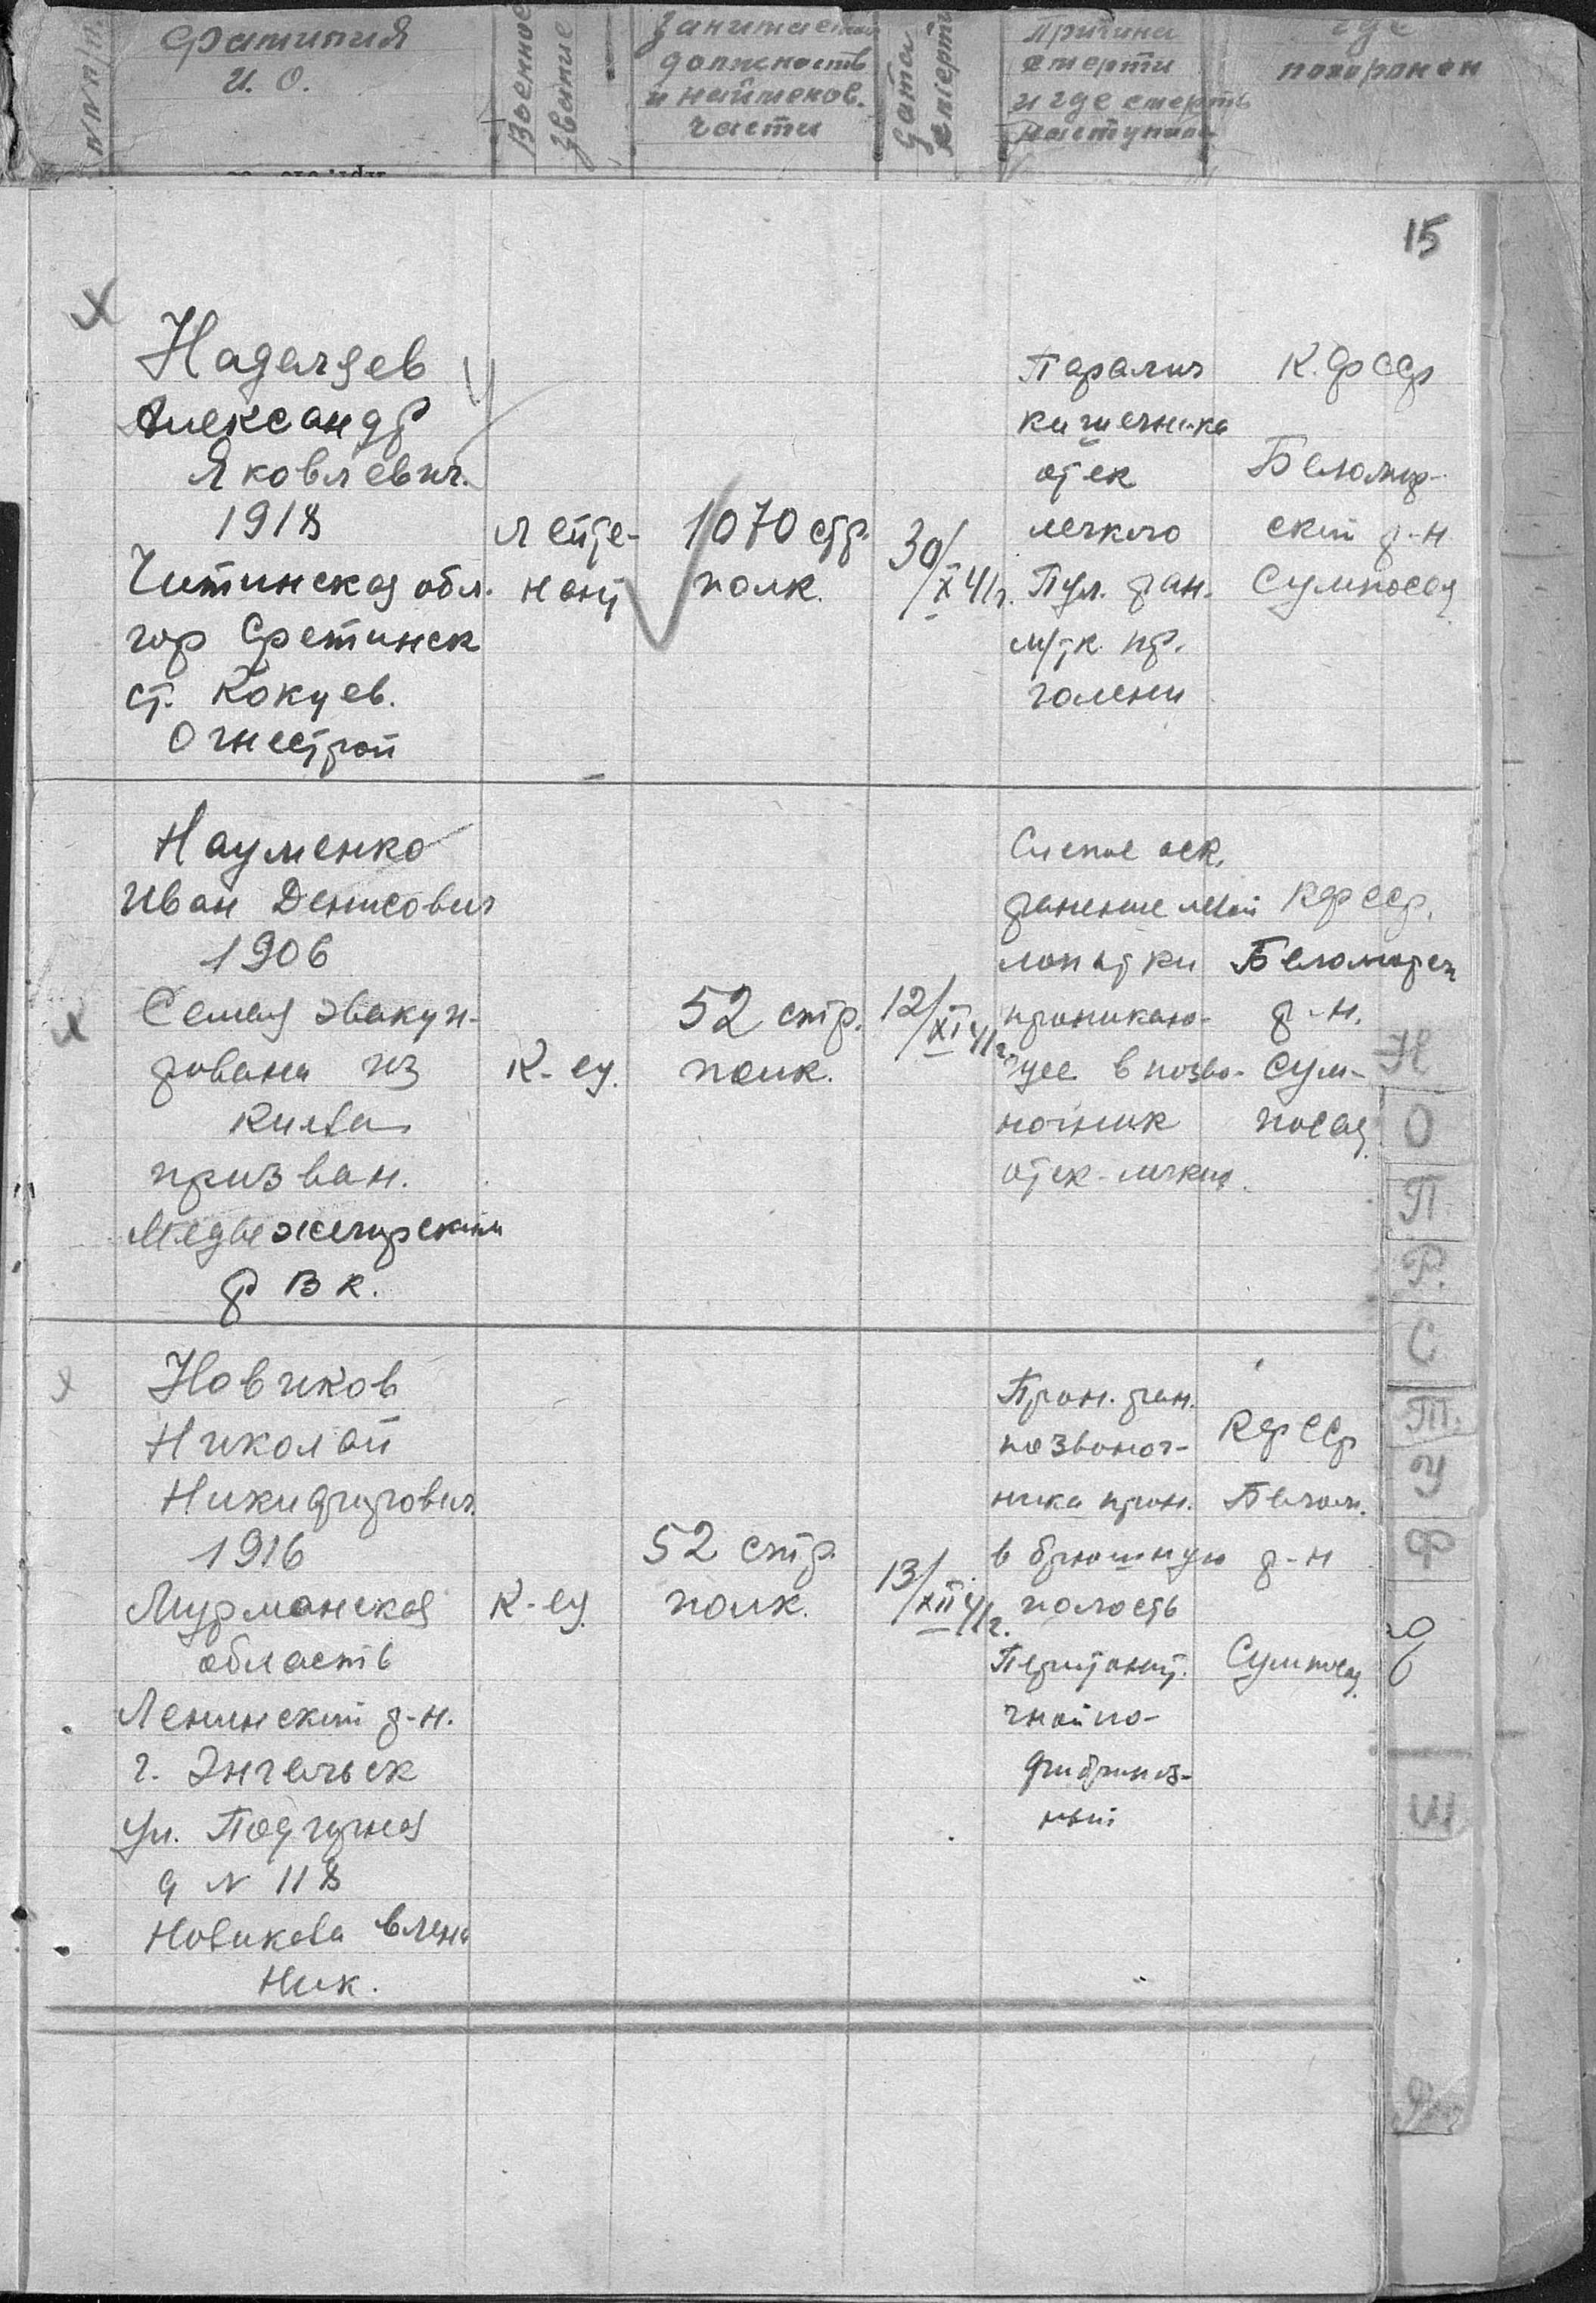 № п/п.
Фамилия
И. О.
Военное
звание
Занимаемая
должность
и наименов.
части
Дата
смерти
Причина
смерти
и где смерть
наступила
где
похоронен
15
Наделяев
Александр
Яковлевич.
1918
Читинская обл.
гор Сретинск
ст. Кокуев.
Огнестрой
лейте-
нант
1070 стр.
полк.
30/X 41г.
Паралич
кишечника
отек
легкого
Пул. ран.
м/тк. пр.
голени
К.ФССР
Беломор-
ский р-н
Сумпосад
Науменко
Иван Денисович
1906
Семья эвакуи-
рована из
Киева
призван.
Медвежегорским
РВК.
К-ец.
52 стр.
полк.
12/XI 41г.
Слепое оск.
ранение левой
лопатки
проникаю-
щее в позво-
ночник
отек легких.
КФССР.
Беломорск
р-н.
Сум-
посад
Новиков
Николай
Никифорович.
1916
Мурманская
область
Ленинский р-н.
г. Энгельск
ул. Подгорная
д № 118
Новикова Елена
Ник.
К-ец.
52 стр.
полк.
13/XII 41г.
Прон. ран.
позвоноч-
ника прон.
в брюшную
полость
Перитонит.
гнойно-
фибриноз-
ный
КФССР
Белом.
р-н
Сумпосад
Н
О
П
Р.
С
Т.
У
Ф
Ш